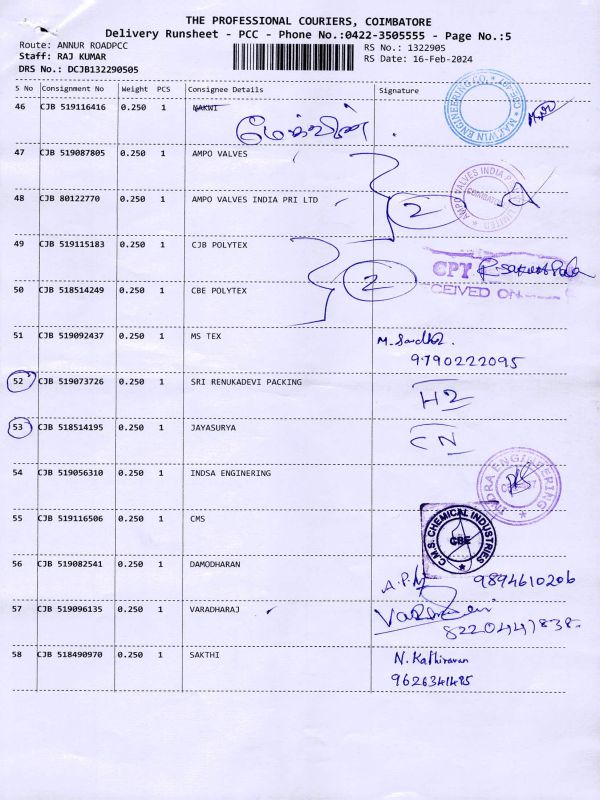 THE PROFESSIONAL COURIERS, COIMBATORE
Delivery Runsheet - PCC - Phone No.:0422-3505555 - Page No.:5
Route: ANNUR ROADPCC RS No.: 1322905
Staff: RAJ KUMAR RS Date: 16-Feb-2024
DRS No.: DCJB132290505
S No Consignment No Weight PCS Consignee Details Signature
46 CJB 519116416 0.250 1 MAKWI
MAKWIN ENGINEERING CO.
47 CJB 519087805 0.250 1 AMPO VALVES
48 CJB 80122770 0.250 1 AMPO VALVES INDIA PRI LTD 2
AMPO VALVES INDIA P LIMITED COIMBATORE
49 CJB 519115183 0.250 1 CJB POLYTEX
2 CPT
CEIVED ON
50 CJB 518514249 0.250 1 CBE POLYTEX
51 CJB 519092437 0.250 1 MS TEX
9790222095
52 CJB 519073726 0.250 1 SRI RENUKADEVI PACKING
H2
53 CJB 518514195 0.250 1 JAYASURYA
CN
54 CJB 519056310 0.250 1 INDSA ENGINERING
INDRA ENGINEERING
55 CJB 519116506 0.250 1 CMS
C.M.S. CHEMICAL INDUSTRIES
CBE
56 CJB 519082541 0.250 1 DAMODHARAN
A.P.M 9894610206
57 CJB 519096135 0.250 1 VARADHARAJ
8220447838
58 CJB 518490970 0.250 1 SAKTHI
N. Kathiravan
9626341485